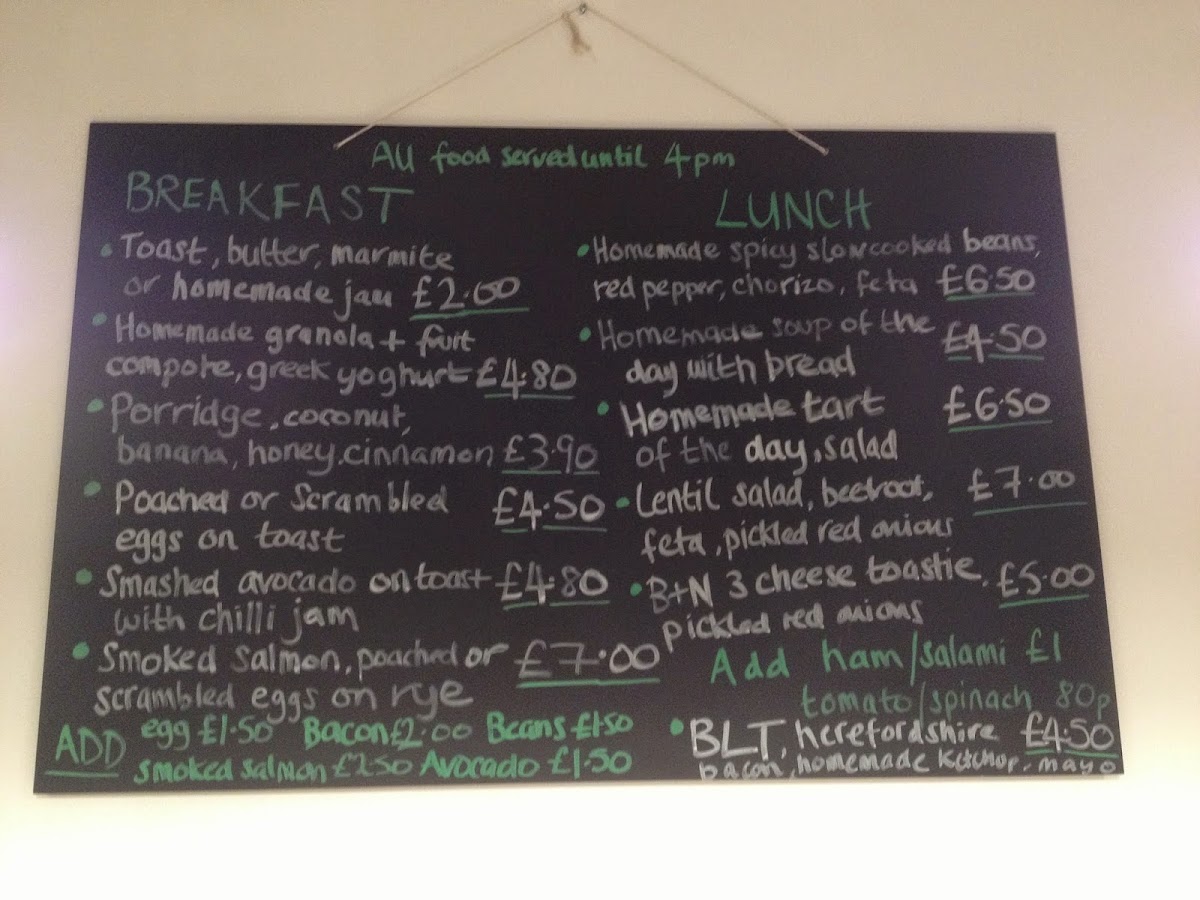 All food served until 4pm
BREAKFAST
• Toast, butter, marmite
or homemade jam £2.00
• Homemade granola + fruit
compote, greek yoghurt £4.80
• Porridge, coconut,
banana, honey, cinnamon £3.90
• Poached or Scrambled £4.50
eggs on toast
• Smashed avocado on toast £4.80
with chilli jam
• Smoked Salmon, poached or £7.00
scrambled eggs on rye
ADD egg £1.50 Bacon £2.00 Beans £1.50
smoked salmon £2.50 Avocado £1.50
LUNCH
• Homemade spicy slow cooked beans,
red pepper, chorizo, feta £6.50
• Homemade soup of the £4.50
day with bread
• Homemade tart £6.50
of the day, salad
• Lentil salad, beetroot, £7.00
feta, pickled red onions
• B+N 3 cheese toastie, £5.00
pickled red onions
Add ham/salami £1
tomato/spinach 80p
• BLT, herefordshire £4.50
bacon, homemade ketchup, mayo